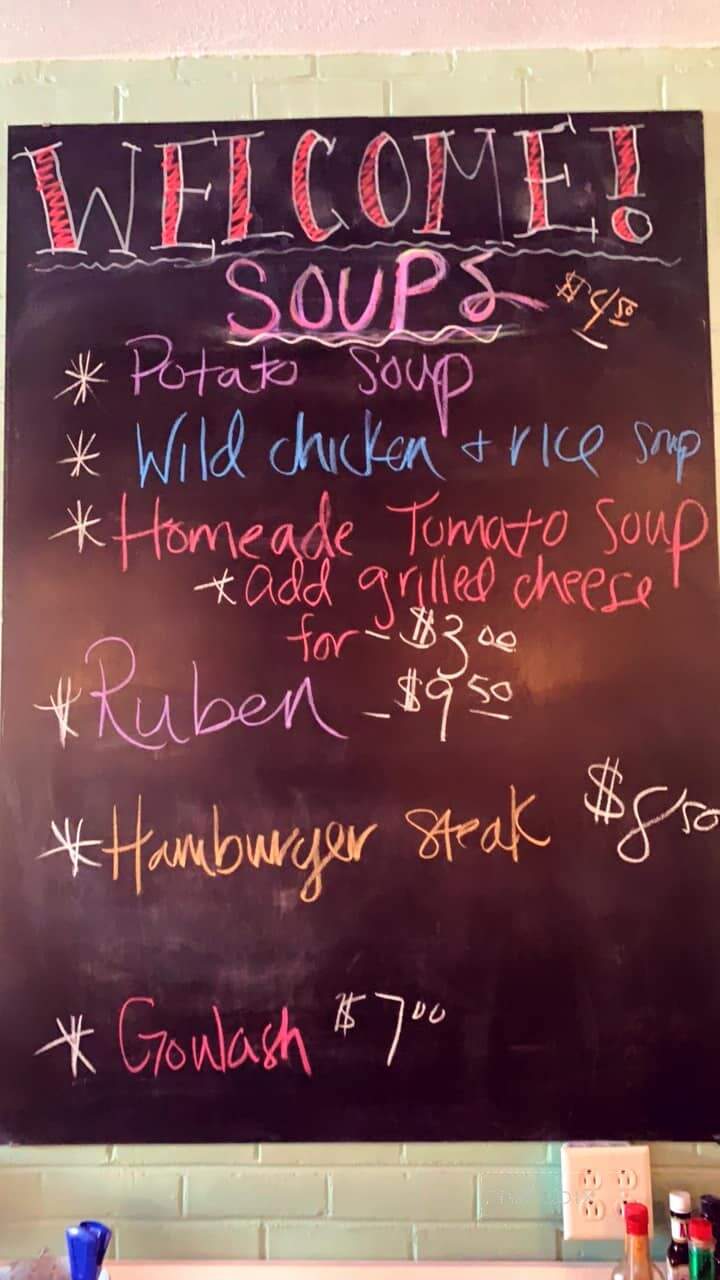 WELCOME!
SOUPS $4.50
* Potato Soup
* Wild chicken + rice soup
* Homeade Tomato Soup
* add grilled cheese
for - $3.00
* Ruben - $9.50
* Hamburger Steak $8.50
* Gowlash $7.00